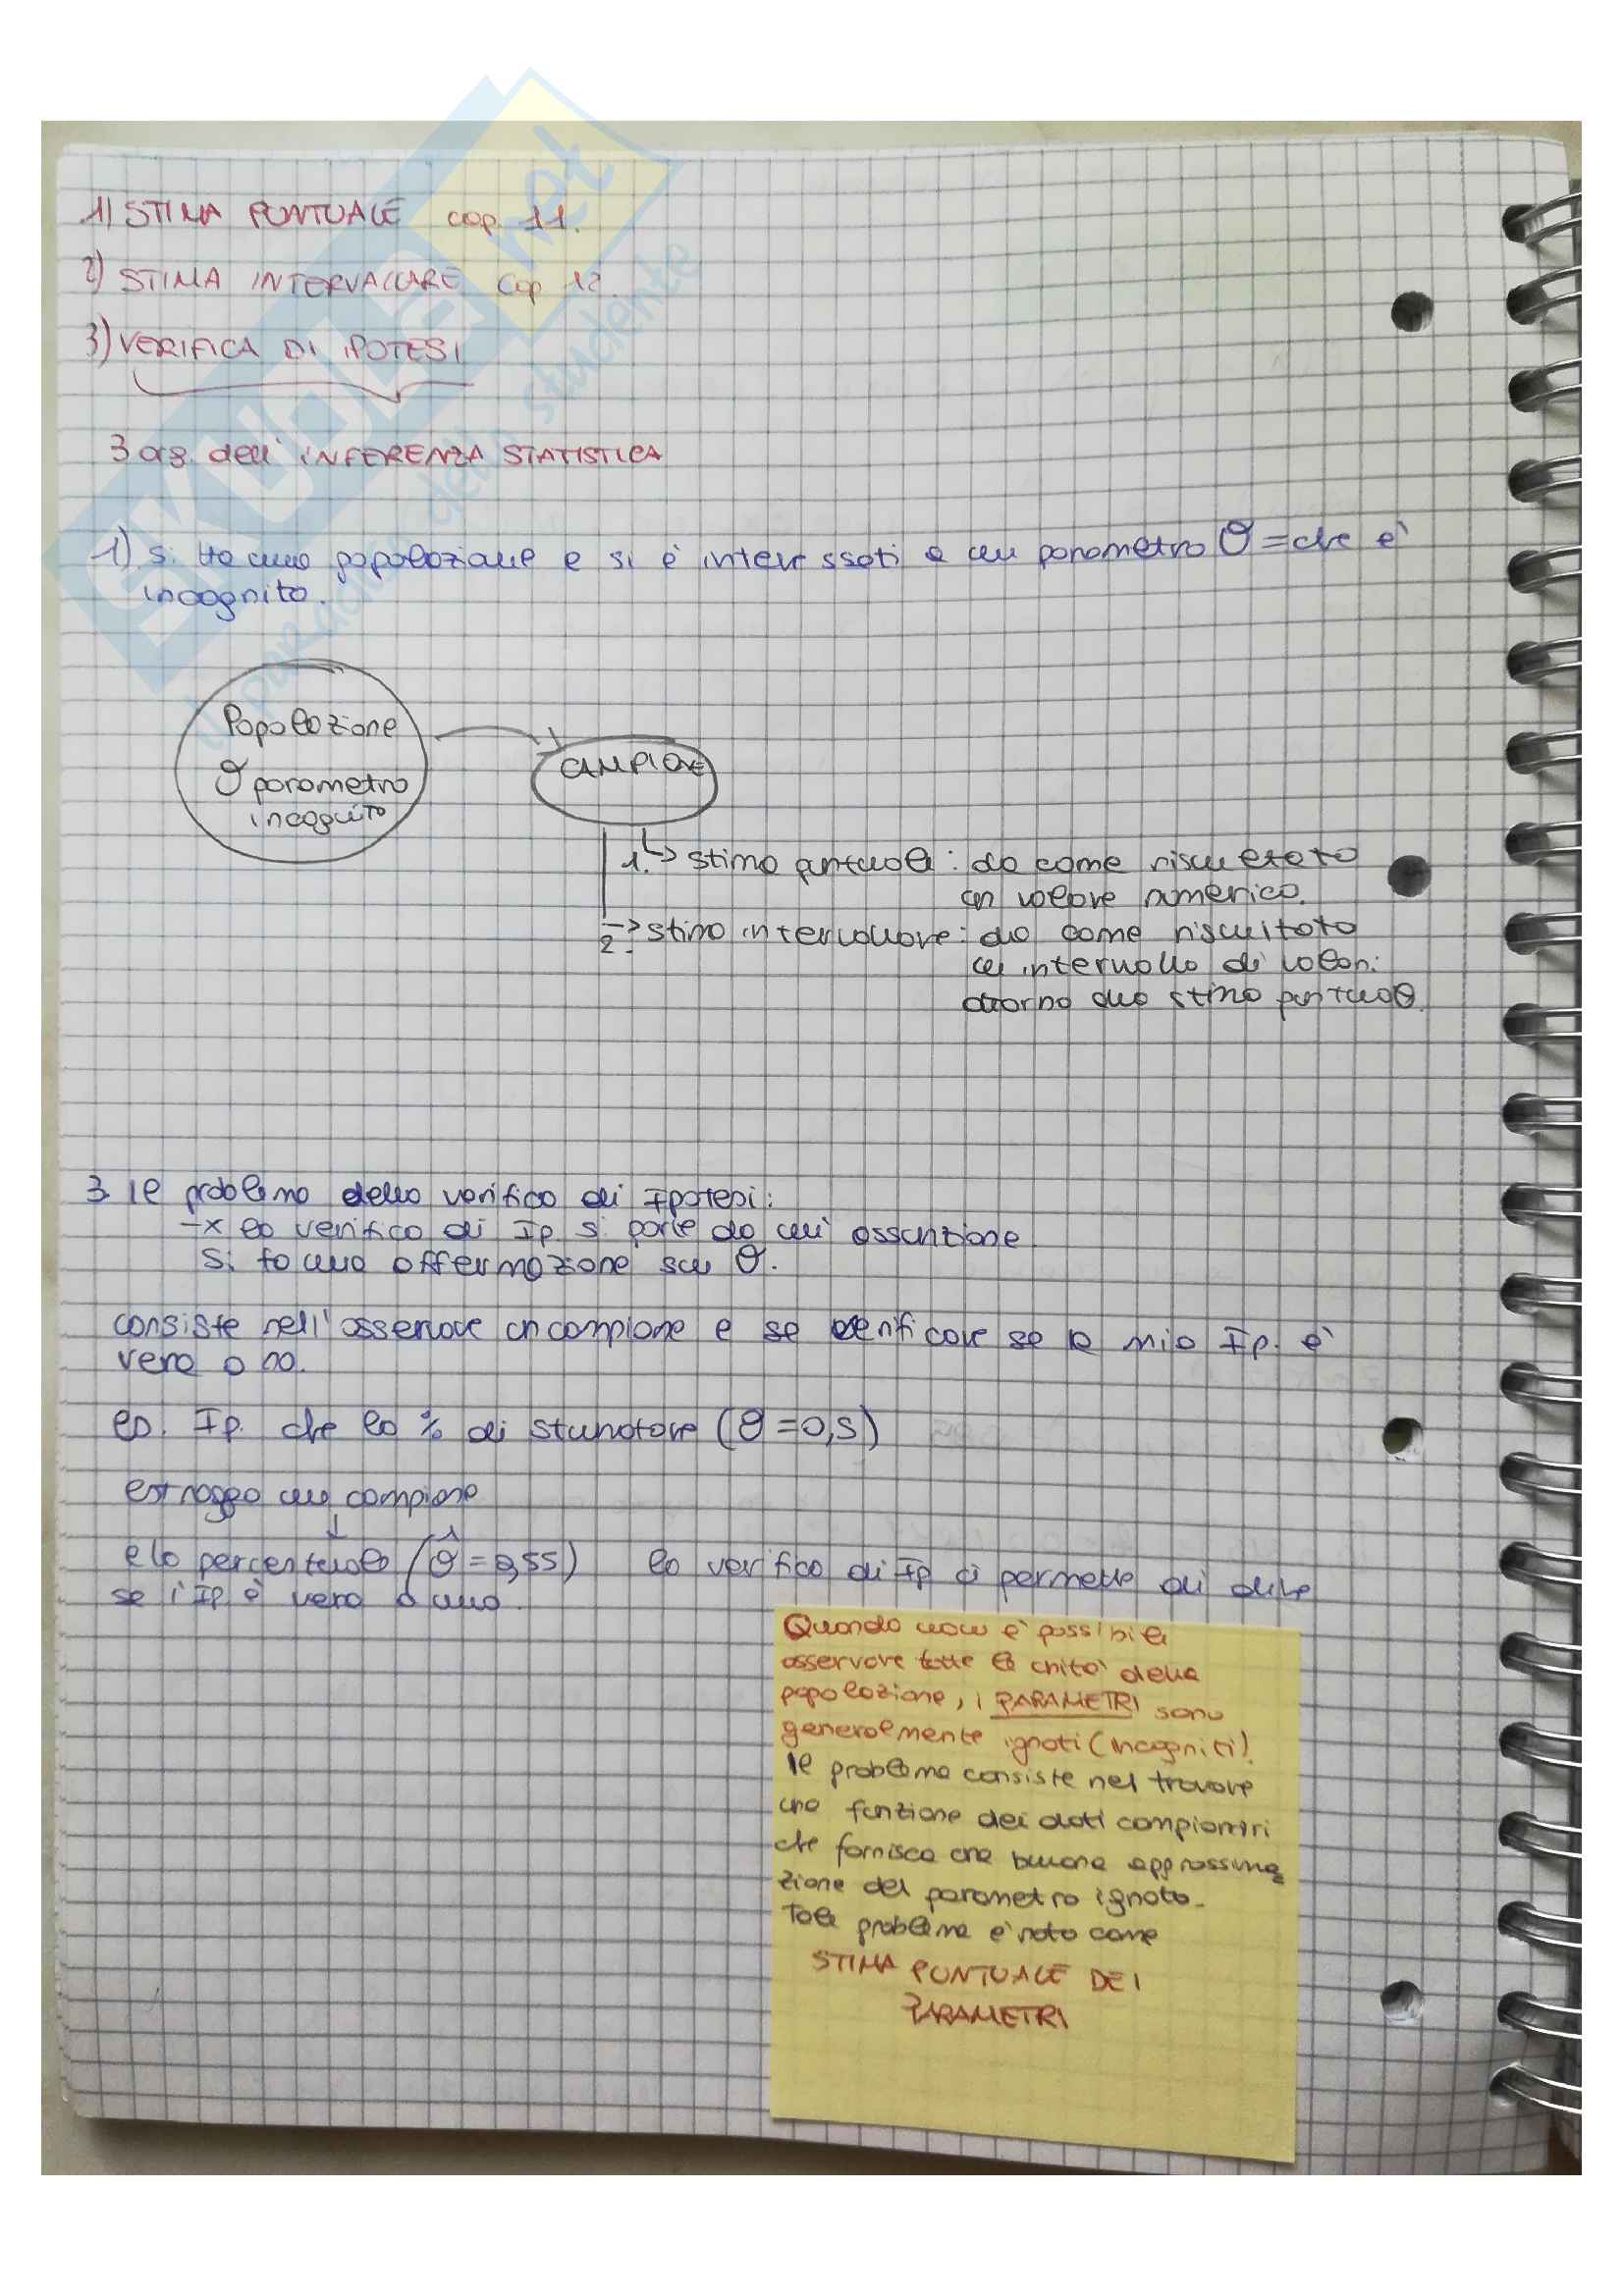 1) STIMA PUNTUALE cap. 11.
2) STIMA INTERVALLARE Cap 12.
3) VERIFICA DI IPOTESI
3 arg. dell' INFERENZA STATISTICA
1) si ha una popolazione e si è interessati a un parametro θ = che è
incognito.
Popolazione
θ parametro
incognito
CAMPIONE
1. → stima puntuale: da come risultato
un valore numerico.
2. → stima intervallare: da come risultato
un intervallo di valori
attorno alla stima puntuale
3. Il problema della verifica di Ipotesi:
-x la verifica di Ip si parte da un' assunzione
si fa una affermazione su θ.
consiste nell'osservare un campione e se verificare se la mia Ip. è
vera o no.
es. Ip. che la % di (θ = 0,5)
estraggo un campione
↓
e la percentuale (θ̂ = 0,55) la verifica di Ip ci permette di dire
se l'Ip è vera o
Quando non è possibile
osservare tutte le unità della
popolazione, i PARAMETRI sono
generalmente ignoti (incogniti).
Il problema consiste nel trovare
una funzione dei dati campionari
che fornisca una buona approssima
zione del parametro ignoto.
Tale problema è noto come
STIMA PUNTUALE DEI
PARAMETRI
SKUOLA.net
il paradiso dello studente